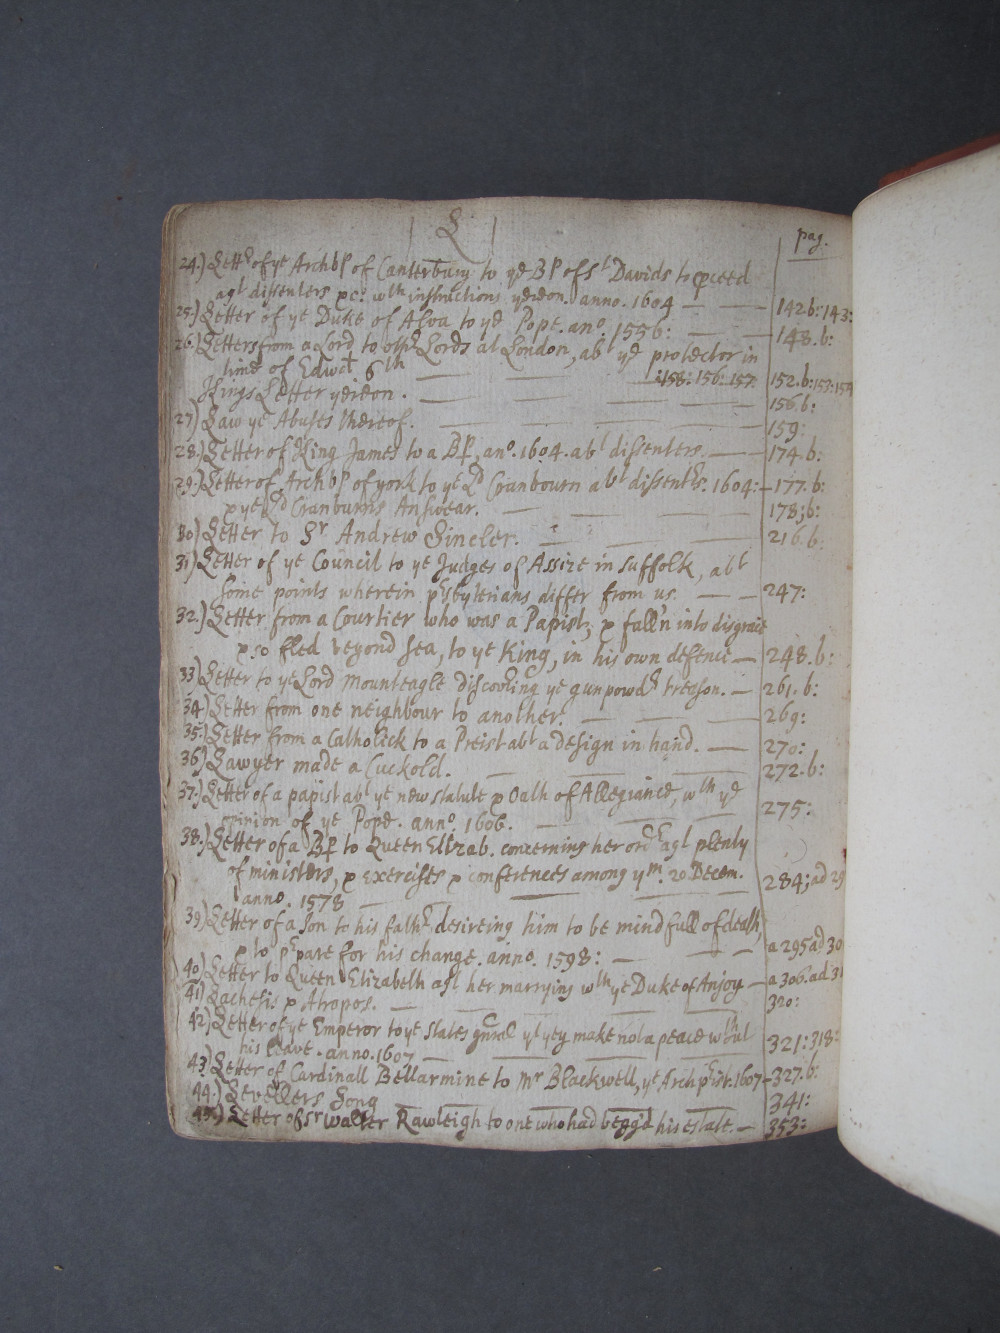 L
pag.
24.) Lettr of ye Archbp of Canterbury to ye Bp of St Davids to proceed
agt dissenters &c: wth instructions yereon. anno. 1604 — — 142.b: 143:
25.) Letter of ye Duke of Alva to ye Pope. ano. 1556: — — 148.b:
26.) Letters from a Lord to othr Lords at London, abt ye protector in
time of Edwd 6th — — — 158: 156: 157: 152.b: 153: 154
Kings Letter yereon. — — — — 156.b:
27) Law ye Abuses thereof. — — — — 159:
28.) Letter of King James to a Bp, ano. 1604. abt dissenters. — — 174.b:
29.) Letter of Archbp of york to ye Ld Cranbourn abt dissentrs. 1604: — 177.b:
& ye Ld Cranburns Answear. — — — 178;b:
30) Letter to Sr Andrew Sincler. — — — 216.b:
31) Letter of ye Council to ye Judges of Assize in Suffolk, abt
some points wherein prsbyterians differ from us. — — 247:
32.) Letter from a Courtier who was a Papist, & fall'n into disgrace
& so fled beyond sea, to ye King, in his own defence — 248.b:
33) Letter to ye Lord Mounteagle discovring ye gunpowdr treason. — 261.b:
34) Letter from one neighbour to another. — — — 269:
35.) Letter from a Catholick to a Preist abt a design in hand. — 270:
36) Lawyer made a Cuckold. — — — 272.b:
37.) Letter of a papist abt ye new statute & Oath of Allegiance, wth ye
opinion of ye Pope. anno 1606. — — — 275:
38.) Letter of a Bp to Queen Elizab. concerning her ordr agt plenty
of ministers, & exercises & conferences among ym. 20 Decem.
anno. 1578 — — — 284; ad 29
39) Letter of a Son to his fathr desireing him to be mindfull of death,
& to prpare for his change. anno. 1598: — — — a 295 ad 30
40) Letter to Queen Elizabeth agt her marrying wth ye Duke of Anjoy — a 306. ad 31
41) Lachesis & Atropos. — — — — 320:
42) Letter of ye Emperor to ye States gnral yt yey make not a peace wthout
his leave. anno. 1607 — — — — 321: 318:
43) Letter of Cardinall Bellarmine to Mr Blackwell, ye Archprist. 1607 — 327.b:
44.) Levellers Song — — — — 341:
45.) Letter of Sr Walter Rawleigh to one who had begg'd his estate. — 353: